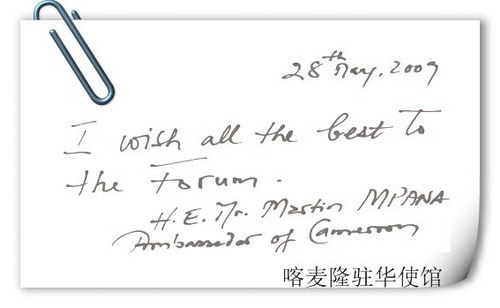 28th May, 2009
I wish all the best to
the Forum.
H.E. Mr. Martin MPANA
Ambassador of Cameroon
喀麦隆驻华使馆